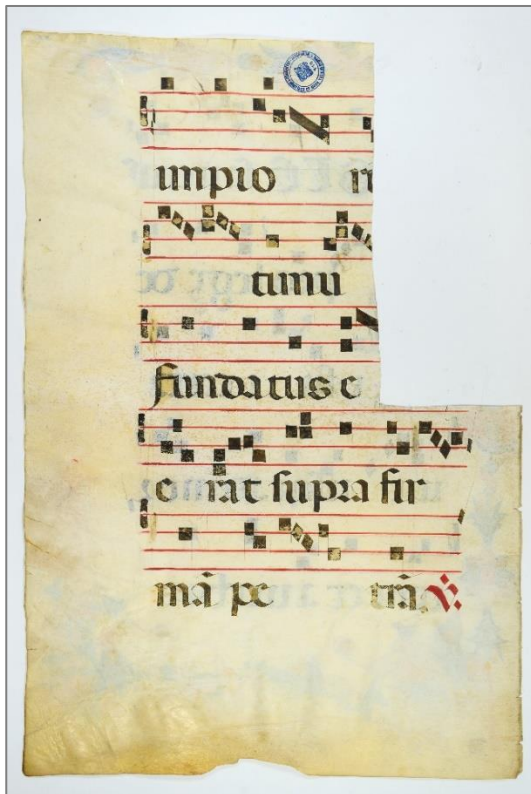 impio
timu
fundatus e
e rat supra fir
mã pe trã. ℣.